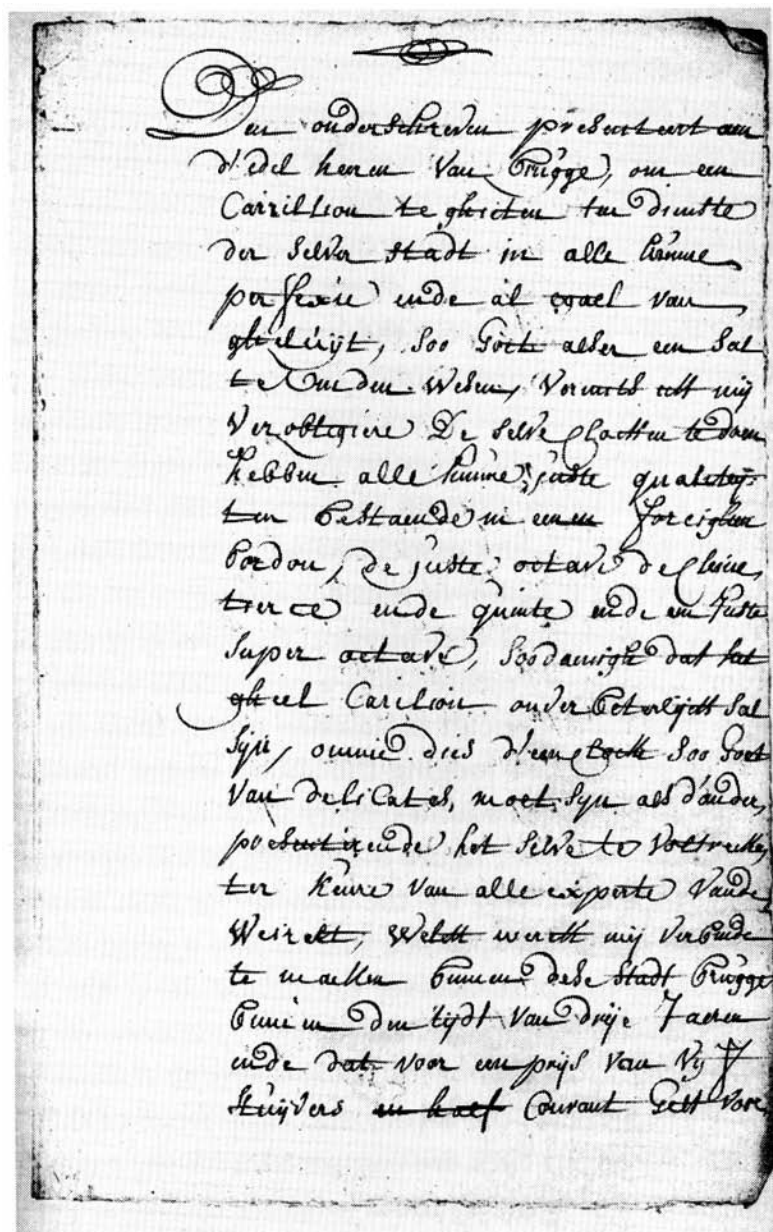 Den onderschreven presenteert aen
d'edel heren van brugge, om een
Carrillion te ghieten ten dienste
der selver stadt in alle sinne
perfexie ende al egael van
gheluijt, soo Goet alser een sal
te vinden wesen, voermits ick mij
verobligiere De selve clocken te doen
hebben alle sinne juste qualitey-
ten bestaende in eenen foreighen
bordon, de juste octave de cleine
tierce ende quinte ende en juste
super octave, soodanigh dat het
gheel Carilion onverbeterlyck sal
syn, omme dies d'een clock soo Goet
van delicates, moet syn als d'ander,
presenterende het selve te voltrecken
ter keure van alle experte vande
Weirelt, Welck werck mij verbinde
te maeken binnen dese stadt brugge
binnen den tijdt van drije Jaeren
ende dat voor een prijs van vijf
stuijvers en half Courant Gelt voor